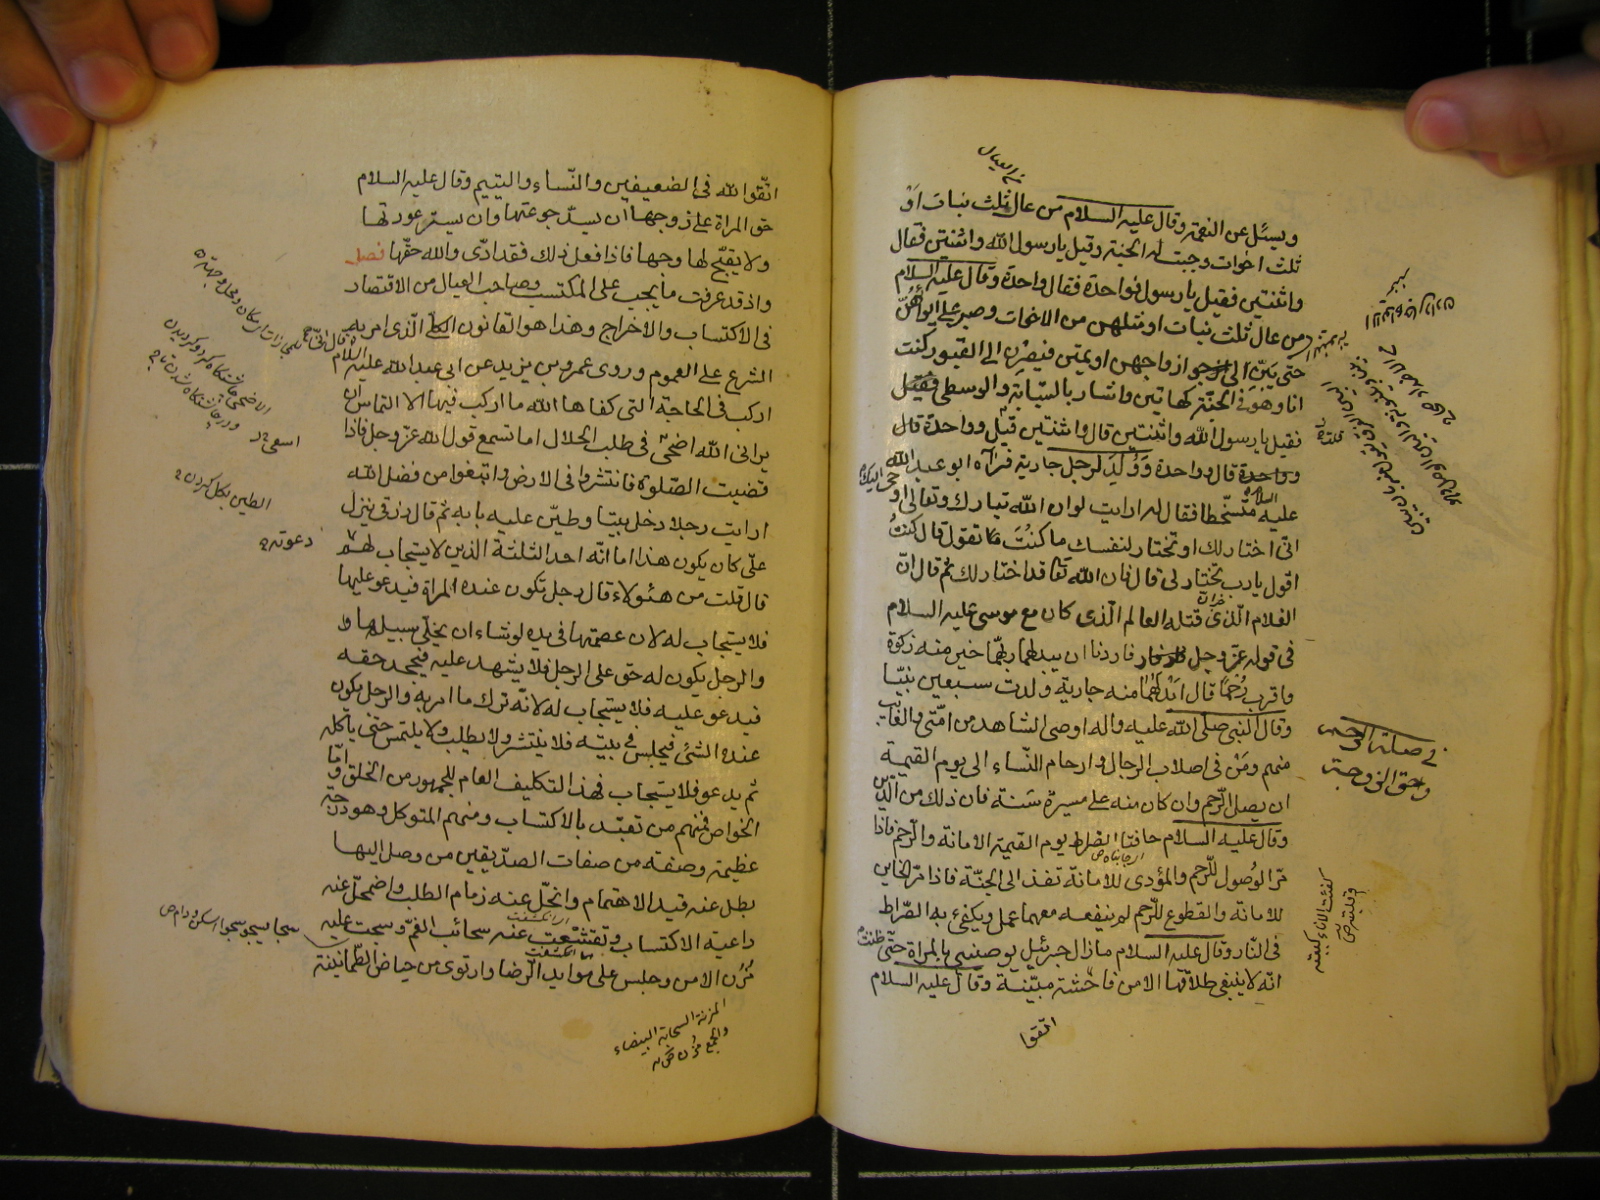 ويسئل عن النعمة وقال عليه السلام من عال ثلث بنات او
ثلث اخوات وجبت له الجنة وقيل يا رسول الله واثنتين فقال
واثنتين فقيل يا رسول الله وواحدة فقال وواحدة وقال عليه السلام
من عال ثلث بنات او مثلهن من الاخوات وصبر على ايوائهن
حتى يبن الى ازواجهن او يمتن فيصرن الى القبور كنت
انا وهو في الجنة كهاتين واشار بالسبابة والوسطى فقيل
فقيل يا رسول الله واثنتين قال واثنتين قيل وواحدة قال
وواحدة قال وواحدة وولد لرجل جارية فرآه ابو عبد الله
عليه السلام متسخطا فقال له ارايت لو ان الله تبارك وتعالى اوحى اليك
انى اختار لك او تختار لنفسك ما كنت تقول قال كنت
اقول يا رب تختار لى قال فان الله تعالى قد اختار لك ثم قال ان
الغلام الذى قتله العالم الذى كان مع موسى عليه السلام
فى قوله عز وجل فاردنا ان يبدلهما ربهما خير منه زكوة
واقرب رحما قال ابدلهما منه جارية ولدت سبعين نبيا
وقال النبى صلى الله عليه واله اوصى الشاهد من امتى والغائب
منهم ومن فى اصلاب الرجال وارحام النساء الى يوم القيمة
ان يصل الرحم وان كان منه على مسيرة سنة فان ذلك من الدين
وقال عليه السلام حافتا الصراط يوم القيمة الامانة والرحم فاذا
مر الوصول للرحم والمؤدى للامانة نفذ الى الجنة فاذا مر الخاين
للامانة والقطوع للرحم لم ينفعه معهما عمل ويكفئ به الصراط
فى النار وقال عليه السلام ما زال جبرئيل يوصينى بالمراة حتى ظننت
انه لا ينبغى طلاقها الا من فاحشة مبينة وقال عليه السلام
اتقوا
فى صلة الرحم
وحق الزوجة
اتقوا الله فى الضعيفين والنساء واليتيم وقال عليه السلام
حق المراة على زوجها ان يسد جوعتها وان يستر عورتها
ولا يقبح لها وجها فاذا فعل ذلك فقد ادى والله حقها فصل
واذ قد عرفت ما يجب على المكتسب وصاحب العيال من الاقتصار
فى الاكتساب والاخراج وهذا هو القانون الكلى الذى امر به
الشرع على العموم وروى عمرو بن يزيد عن ابى عبد الله عليه السلام قال انى
اركب فى الحاجة التى كفاها الله ما اركب فيها الا التماس ان
يرانى الله اضحى فى طلب الحلال اما تسمع قول الله عز وجل فاذا
قضيت الصلوة فانتشروا فى الارض وابتغوا من فضل الله
ارايت رجلا دخل بيتا وطين عليه بابه ثم قال رزقى ينزل
على كان يكون هذا اما انه احد الثلثة الذين لا يستجاب لهم
قال قلت من هئولاء قال رجل تكون عنده المراة فيدعو عليها
فلا يستجاب له لان عصمتها فى يده لو شاء ان يخلى سبيلها
والرجل يكون له حق على الرجل فلا يشهد عليه فيجحد حقه
فيدعو عليه فلا يستجاب له لانه ترك ما امر به والرجل يكون
عنده الشئ فيجلس فى بيته فلا ينتشر ولا يطلب ولا يلتمس حتى ياكله
ثم يدعو فلا يستجاب فهذا التكليف العام للجمهور من الخلق واما
الخواص فمنهم من تعبد بالاكتساب ومنهم المتوكل وهو درجة
عظيمة وصفة من صفات الصديقين من وصل اليها
بطل عنه قيد الاهتمام وانحل عنه زمام الطلب واضمحل عنه
داعية الاكتساب وتقشعت عنه سحائب الغم وسجت عليه
مزن الامن وجلس على موايد الرضا وارتوى من حياض الطمانينة
المزنة السحابة البيضاء
والجمع مزن